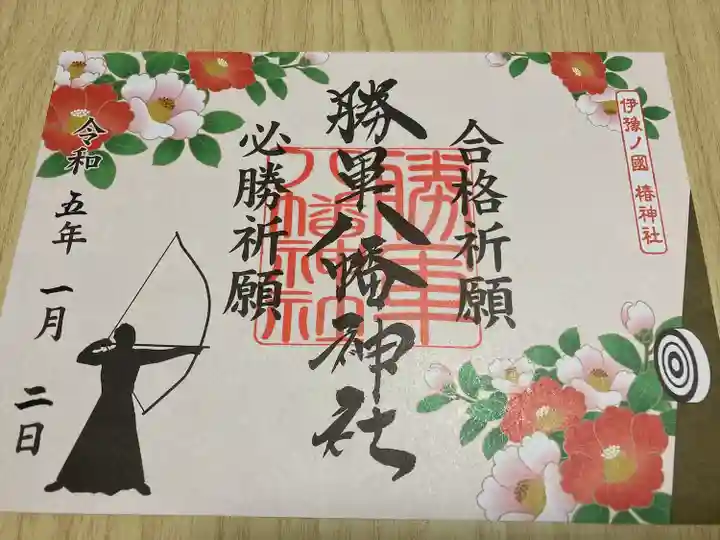 伊豫ノ國 椿神社
合格祈願
勝軍八幡神社
必勝祈願
令和五年一月二日
勝軍
八幡神社